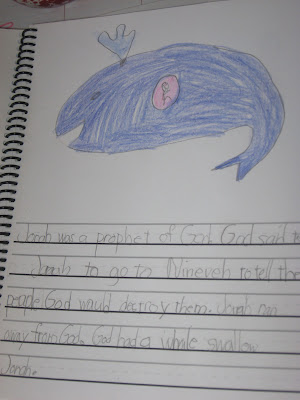 Jonah was a prophet of God. God said to
Jonah to go to Nineveh to tell the
people God would destroy them. Jonah ran
away from God. God had a whale swallow
Jonah.